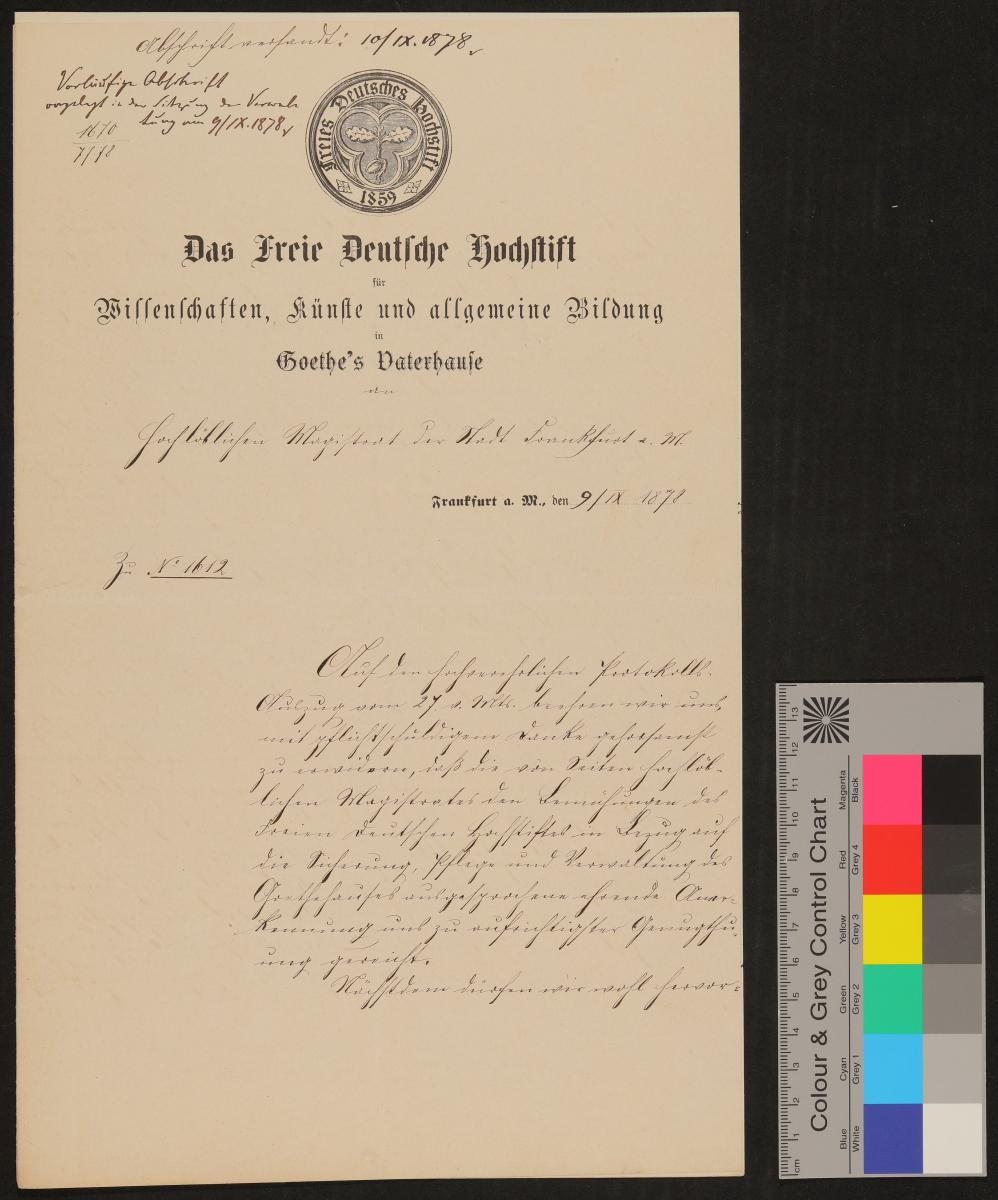 Abschrift versandt: 10/IX.1878.
Vorläufige Abschrift
vorgelegt in der Sitzung der Verwal
tung am 9/IX.1878
1670
7/78
Freies Deutsches Hochstift
1859
Das Freie Deutsche Hochstift
für
Wissenschaften, Künste und allgemeine Bildung
in
Goethe's Vaterhause
an
Hochlöblichen Magistrat der Stadt Frankfurt a. M.
Frankfurt a. M., den 9/IX 1878
Zu No 1612
Auf den hochverehrlichen Protokolls-
Auszug vom 27. v. Mts. beehren wir uns
mit pflichtschuldigem Danke gehorsamst
zu erwidern, daß die von Seiten Hochlöb-
lichen Magistrates den Bemühungen des
Freien Deutschen Hochstiftes in Bezug auf
die Sicherung, Pflege und Verwaltung des
Goethehauses ausgesprochene ehrende Aner-
kennung uns zu aufrichtigster Genugthu-
ung gereicht.
Nächstdem dürfen wir wohl hervor-
Colour & Grey Control Chart
Blue Cyan Green Yellow Red Magenta
White Grey 1 Grey 2 Grey 3 Grey 4 Black
cm 1 2 3 4 5 6 7 8 9 10 11 12 13